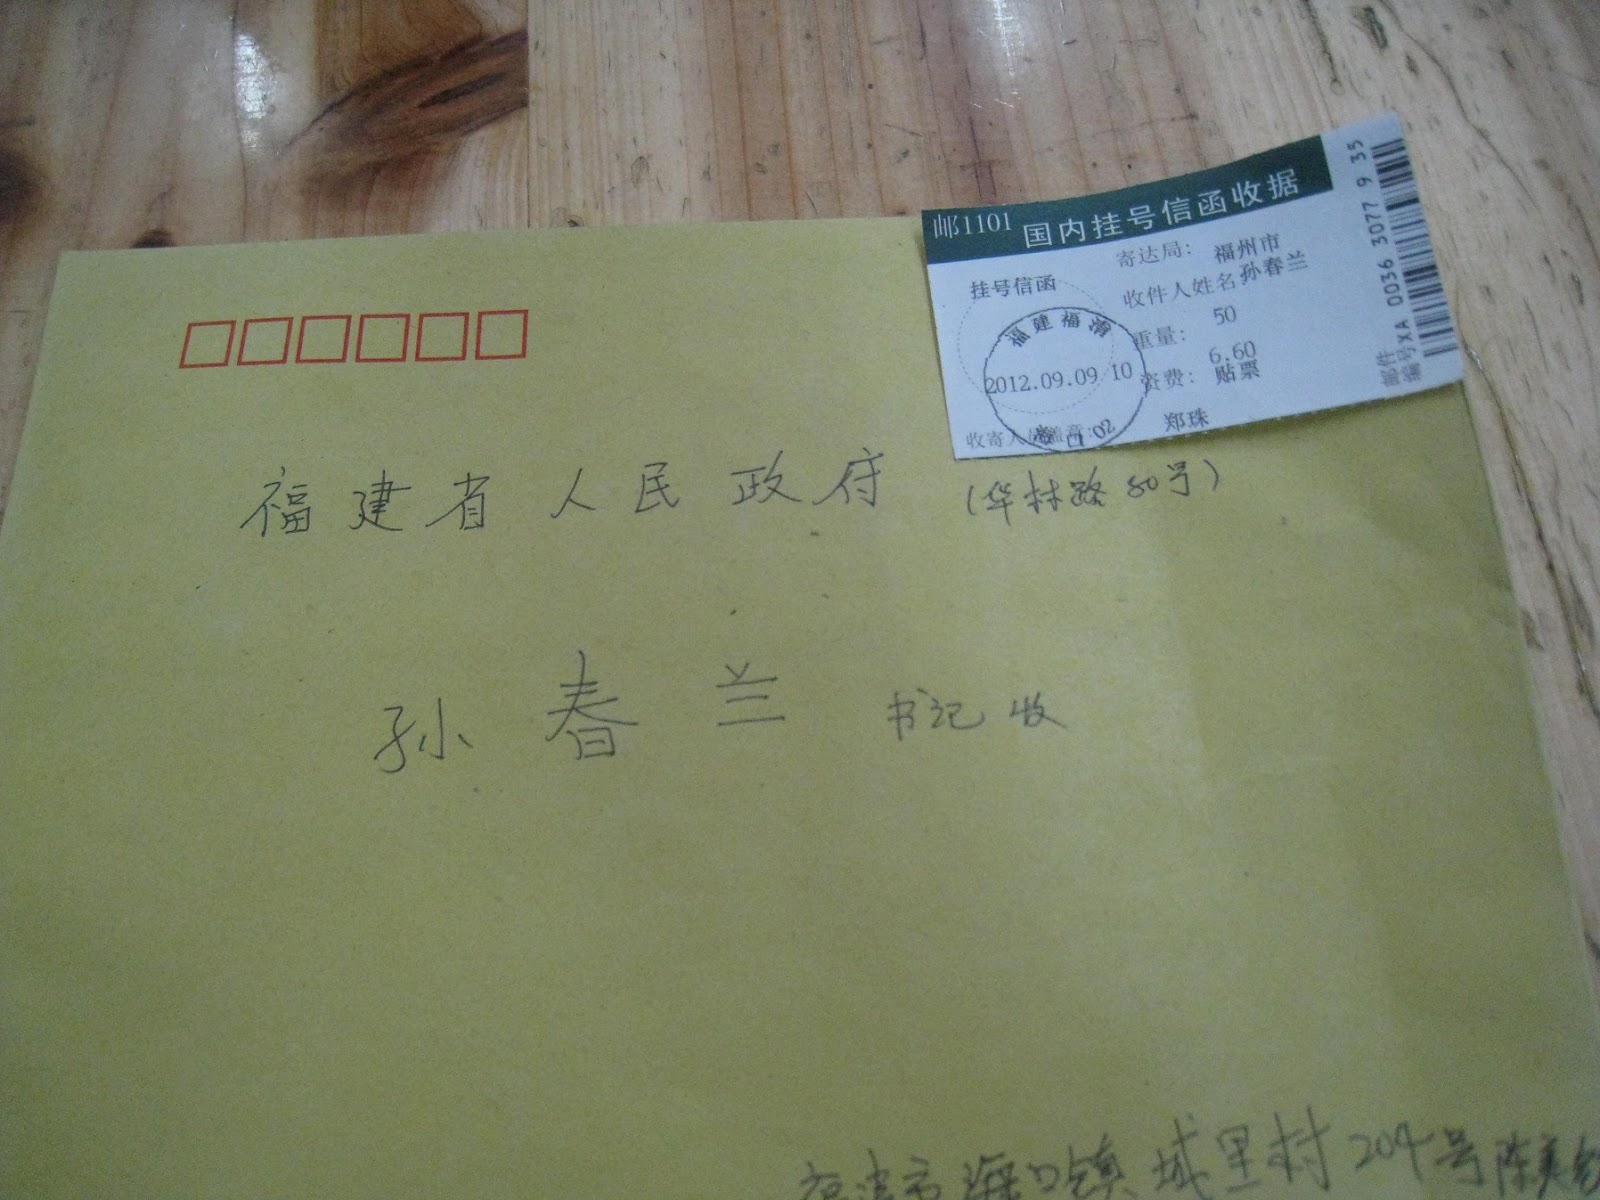 邮1101 国内挂号信函收据
挂号信函
寄达局: 福州市
收件人姓名 孙春兰
重量: 50
6.60
资费: 贴票
福建福清
2012.09.09 10
口 02
收寄人员盖章: 郑珠
邮件
编号 XA 0036 3077 9 35
福建省人民政府 (华林路80号)
孙春兰 书记 收
福清市海口镇城里村204号陈美